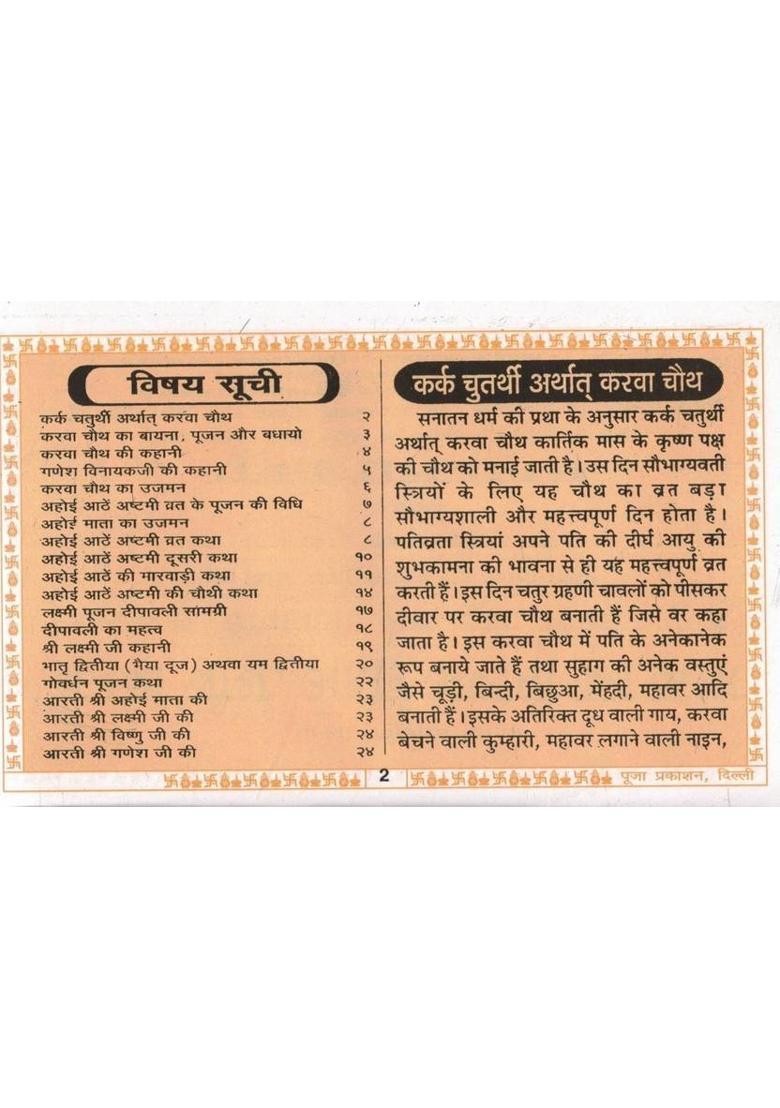 विषय सूची
कर्क चतुर्थी अर्थात् करवा चौथ २
करवा चौथ का बायना, पूजन और बधायो ३
करवा चौथ की कहानी ४
गणेश विनायकजी की कहानी ५
करवा चौथ का उजमन ६
अहोई आठें अष्टमी व्रत के पूजन की विधि ७
अहोई माता का उजमन ८
अहोई आठें अष्टमी व्रत कथा ८
अहोई आठें अष्टमी दूसरी कथा १०
अहोई आठें की मारवाड़ी कथा ११
अहोई आठें अष्टमी की चौथी कथा १४
लक्ष्मी पूजन दीपावली सामग्री १७
दीपावली का महत्व १८
श्री लक्ष्मी जी कहानी १९
भातृ द्वितीया (भैया दूज) अथवा यम द्वितीया २०
गोवर्धन पूजन कथा २२
आरती श्री अहोई माता की २३
आरती श्री लक्ष्मी जी की २३
आरती श्री विष्णु जी की २४
आरती श्री गणेश जी की २४
कर्क चुतर्थी अर्थात् करवा चौथ
सनातन धर्म की प्रथा के अनुसार कर्क चतुर्थी
अर्थात् करवा चौथ कार्तिक मास के कृष्ण पक्ष
की चौथ को मनाई जाती है। उस दिन सौभाग्यवती
स्त्रियों के लिए यह चौथ का व्रत बड़ा
सौभाग्यशाली और महत्त्वपूर्ण दिन होता है।
पतिव्रता स्त्रियां अपने पति की दीर्घ आयु की
शुभकामना की भावना से ही यह महत्त्वपूर्ण व्रत
करती हैं। इस दिन चतुर ग्रहणी चावलों को पीसकर
दीवार पर करवा चौथ बनाती हैं जिसे वर कहा
जाता है। इस करवा चौथ में पति के अनेकानेक
रूप बनाये जाते हैं तथा सुहाग की अनेक वस्तुएं
जैसे चूड़ी, बिन्दी, बिछुआ, मेंहदी, महावर आदि
बनाती हैं। इसके अतिरिक्त दूध वाली गाय, करवा
बेचने वाली कुम्हारी, महावर लगाने वाली नाइन,
2
पूजा प्रकाशन, दिल्ली